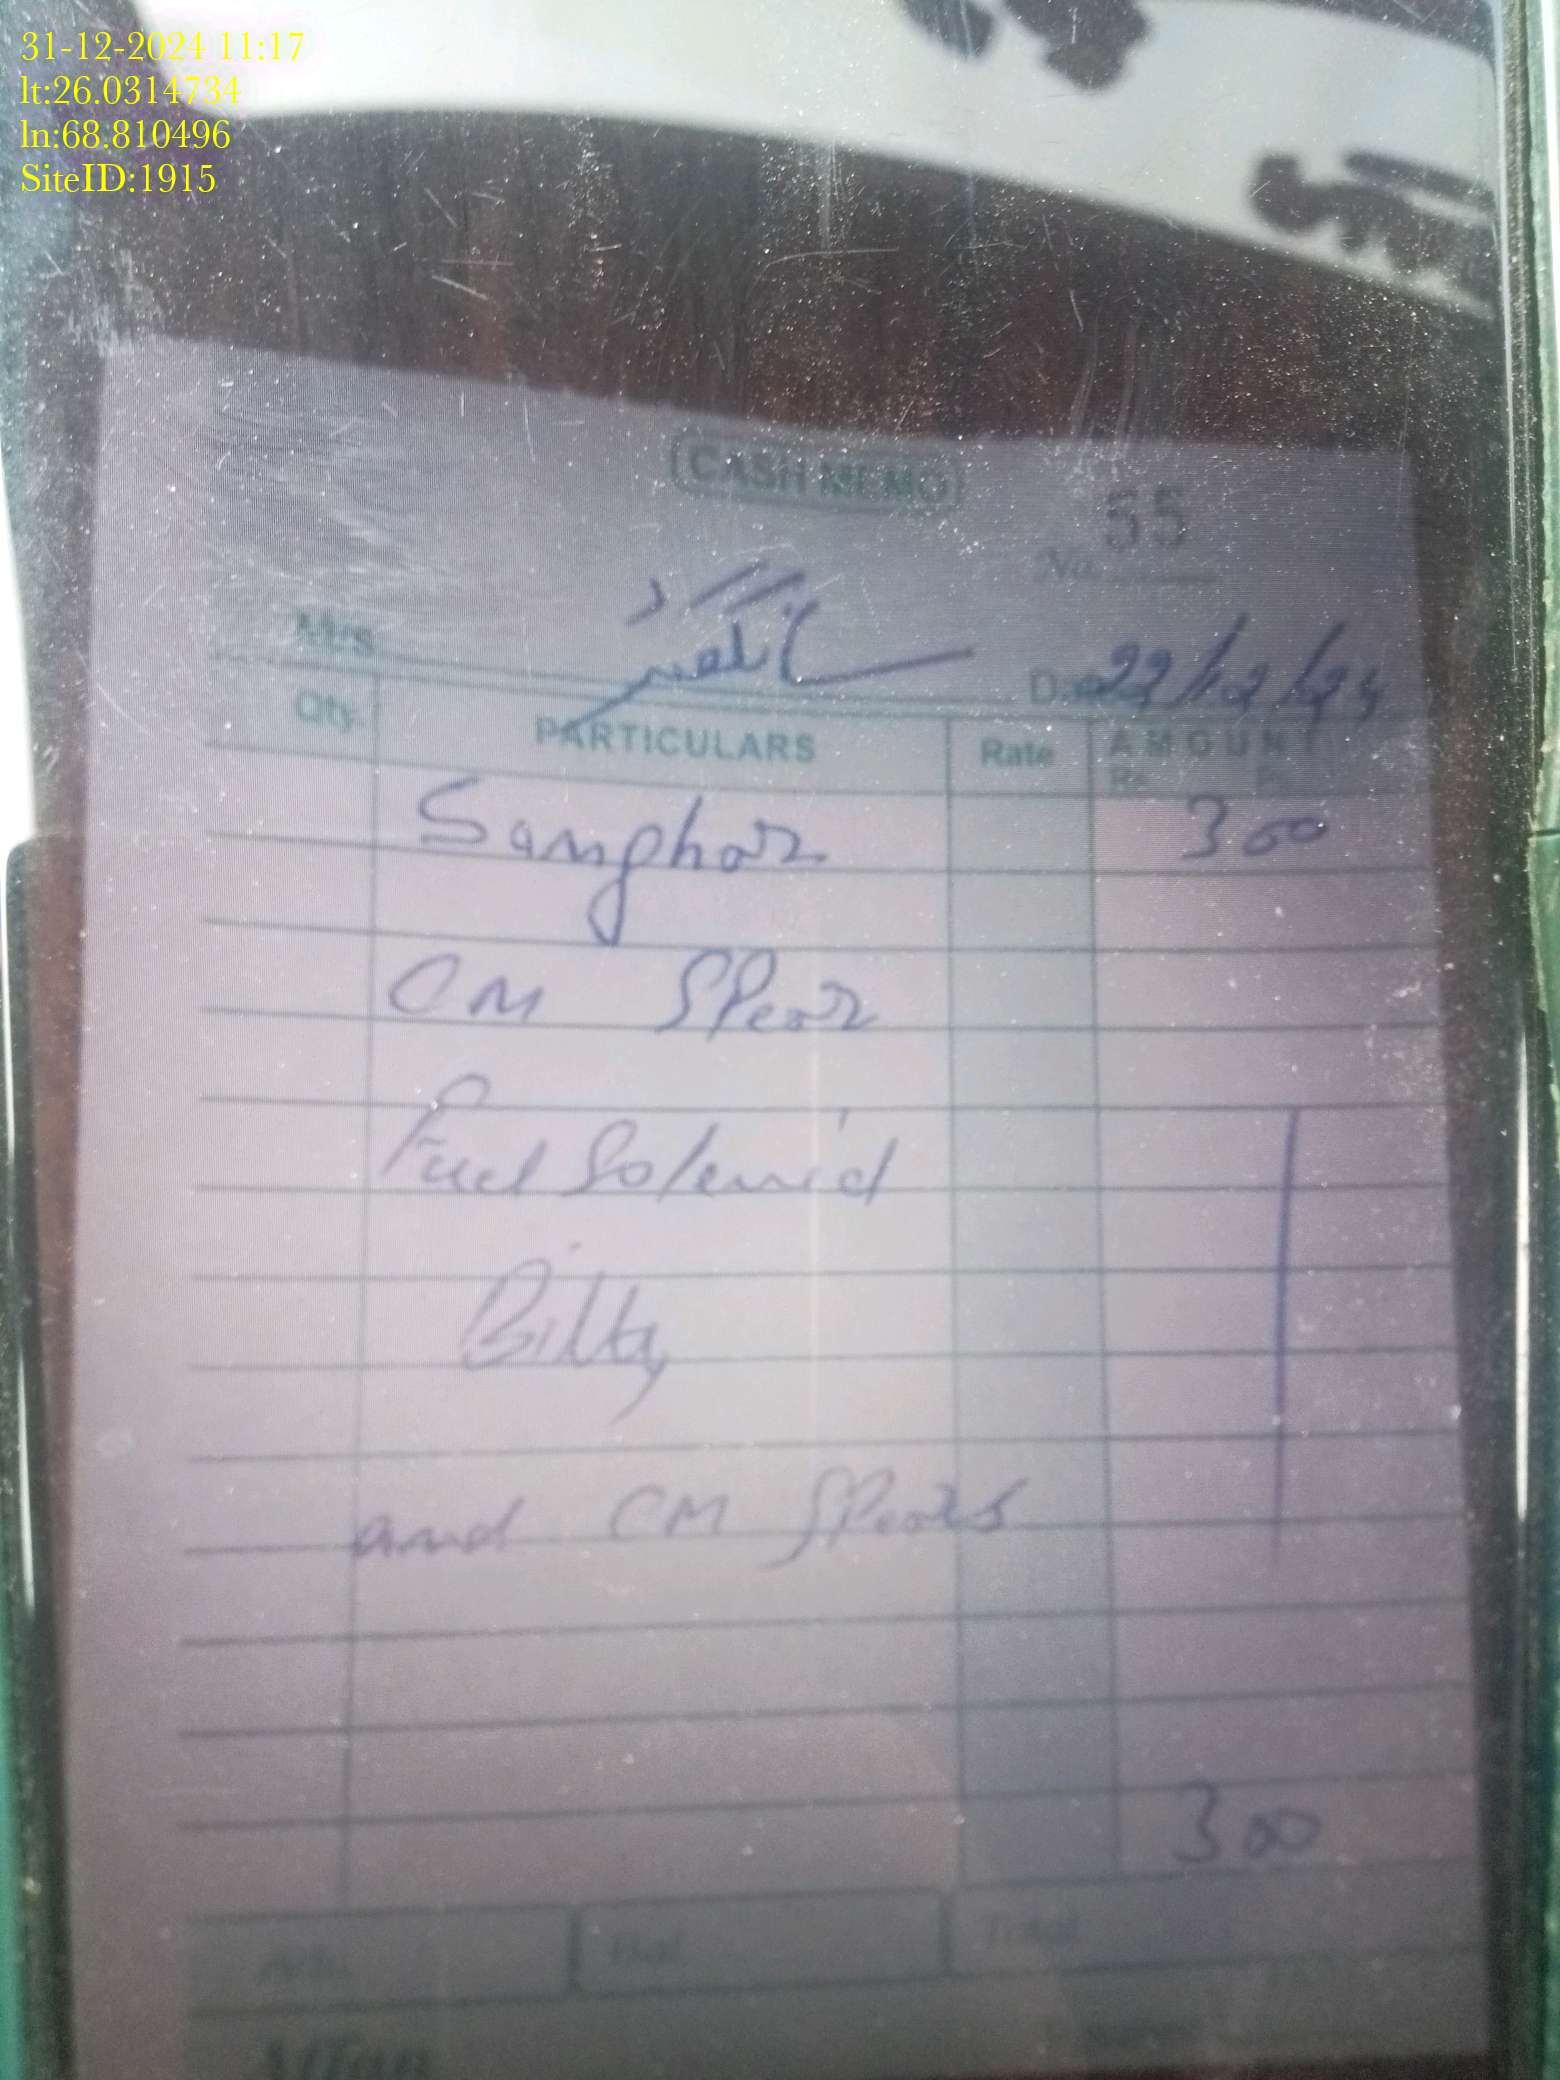 31-12-2024 11:17
lt:26.0314734
ln:68.810496
SiteID:1915
CASH MEMO
No. 55
M/s
Qty. PARTICULARS Rate AMOUNT
Sanghar 300
CM Spear
Fuel Solenid
Bilty
and CM Spears
300
Adv. Bal. Total